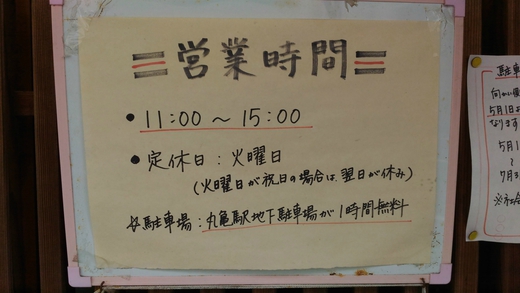 営業時間
• 11:00 ～ 15:00
• 定休日：火曜日
(火曜日が祝日の場合は、翌日が休み)
☆駐車場：丸亀駅地下駐車場が1時間無料
駐車
向かい
5月1日
なります
5月1
～
7月3
※